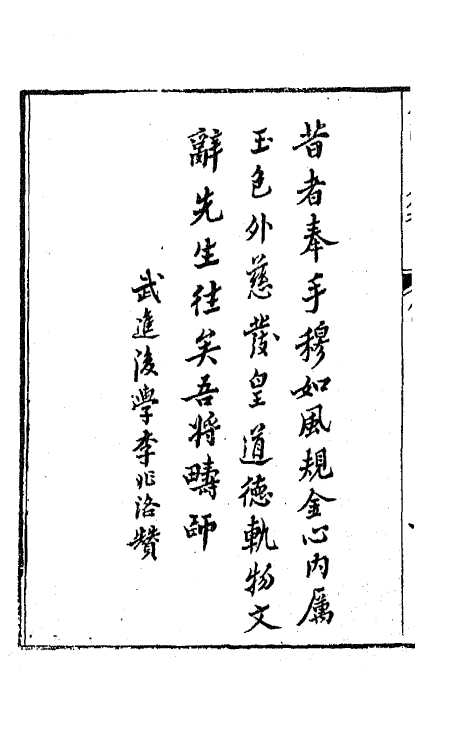 昔者奉手穆如風規金心内厲
玉色外慈發皇道德軌物文
辭先生往矣吾將疇師
武進後學李兆洛贊